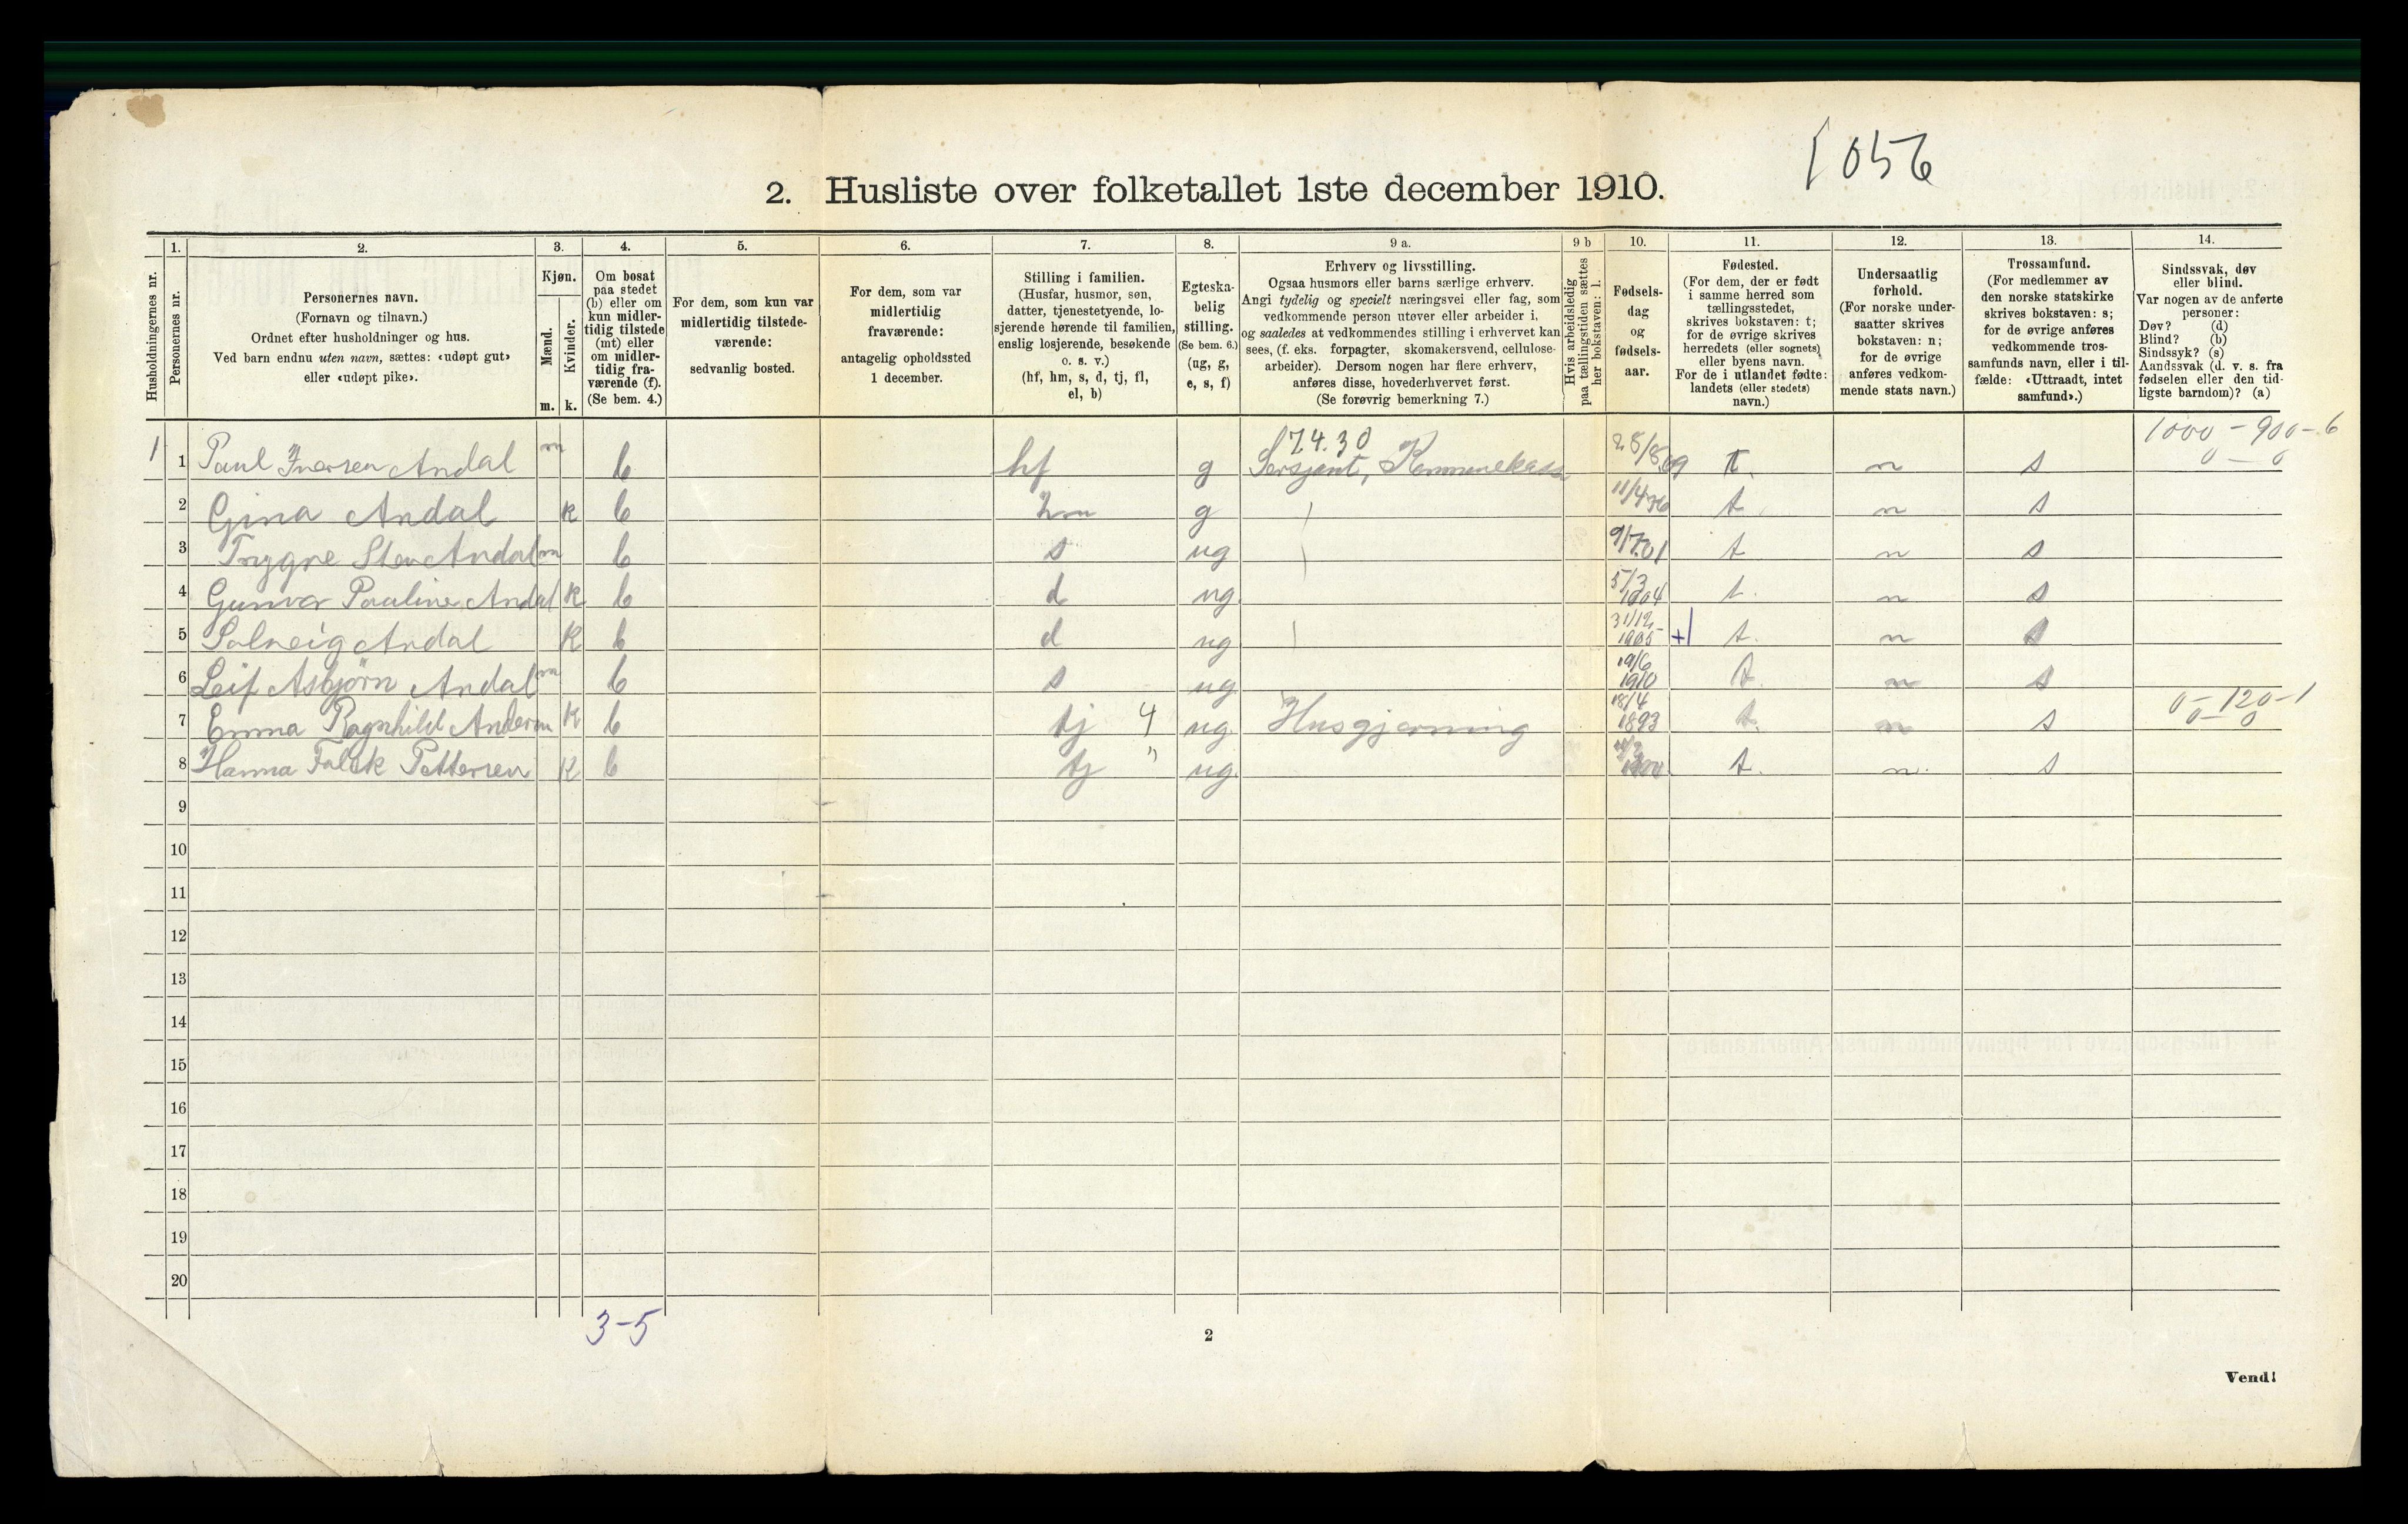 1056
2. Husliste over folketallet 1ste december 1910.
Husholdningernes nr.
1.
Personernes nr.
2.
Personernes navn.
(Fornavn og tilnavn.)
Ordnet efter husholdninger og hus.
Ved barn endnu uten navn, sættes: «udøpt gut»
eller «udøpt pike».
3.
Kjøn.
Mænd.
Kvinder.
m. k.
4.
Om bosat
paa stedet
(b) eller om
kun midler-
tidig tilstede
(mt) eller
om midler-
tidig fra-
værende (f).
(Se bem. 4.)
5.
For dem, som kun var
midlertidig tilstede-
værende:
sedvanlig bosted.
6.
For dem, som var
midlertidig
fraværende:
antagelig opholdssted
1 december.
7.
Stilling i familien.
(Husfar, husmor, søn,
datter, tjenestetyende, lo-
sjerende hørende til familien,
enslig losjerende, besøkende
o. s. v.)
(hf, hm, s, d, tj, fl,
el, b)
8.
Egteska-
belig
stilling.
(Se bem. 6.)
(ug, g,
e, s, f)
9 a.
Erhverv og livsstilling.
Ogsaa husmors eller barns særlige erhverv.
Angi tydelig og specielt næringsvei eller fag, som
vedkommende person utøver eller arbeider i,
og saaledes at vedkommendes stilling i erhvervet kan
sees, (f. eks. forpagter, skomakersvend, cellulose-
arbeider). Dersom nogen har flere erhverv,
anføres disse, hovederhvervet først.
(Se forøvrig bemerkning 7.)
9 b
Hvis arbeidsledig
paa tællingstiden sættes
her bokstaven: l.
10.
Fødsels-
dag
og
fødsels-
aar.
11.
Fødested.
(For dem, der er født
i samme herred som
tællingsstedet,
skrives bokstaven: t;
for de øvrige skrives
herredets (eller sognets)
eller byens navn.
For de i utlandet fødte:
landets (eller stedets)
navn.)
12.
Undersaatlig
forhold.
(For norske under-
saatter skrives
bokstaven: n;
for de øvrige
anføres vedkom-
mende stats navn.)
13.
Trossamfund.
(For medlemmer av
den norske statskirke
skrives bokstaven: s;
for de øvrige anføres
vedkommende tros-
samfunds navn, eller i til-
fælde: «Uttraadt, intet
samfund».)
14.
Sindssvak, døv
eller blind.
Var nogen av de anførte
personer:
Døv? (d)
Blind? (b)
Sindssyk? (s)
Aandssvak (d. v. s. fra
fødselen eller den tid-
ligste barndom)? (a)
74.30 1000 - 900 - 6
0 - 0
1 1 Paul Iversen Andal m b hf g Sersjant, Kommunekass t. n s
2 Gina Andal k b hm g 11/4 76 t. n s
3 Trygve Sten Andal m b s ug 9/7 01 t n s
4 Gunvor Pauline Andal k b d ug. 5/3 1904 t. n s
5 Solveig Andal k b d ug 31/12 1905 +1 t. n s
6 Leif Asbjørn Andal m b s ug 19/6 1910 t. n s
7 Emma Ragnhild Andersen k b tj 4 ug. Husgjerning 18/4 1893 t. n s 0 - 120 - 1
0 - 0
8 Hanna Falck Pettersen k b tj " ug. t. n. s
9
10
11
12
13
14
15
16
17
18
19
20
3-5
2
Vend!